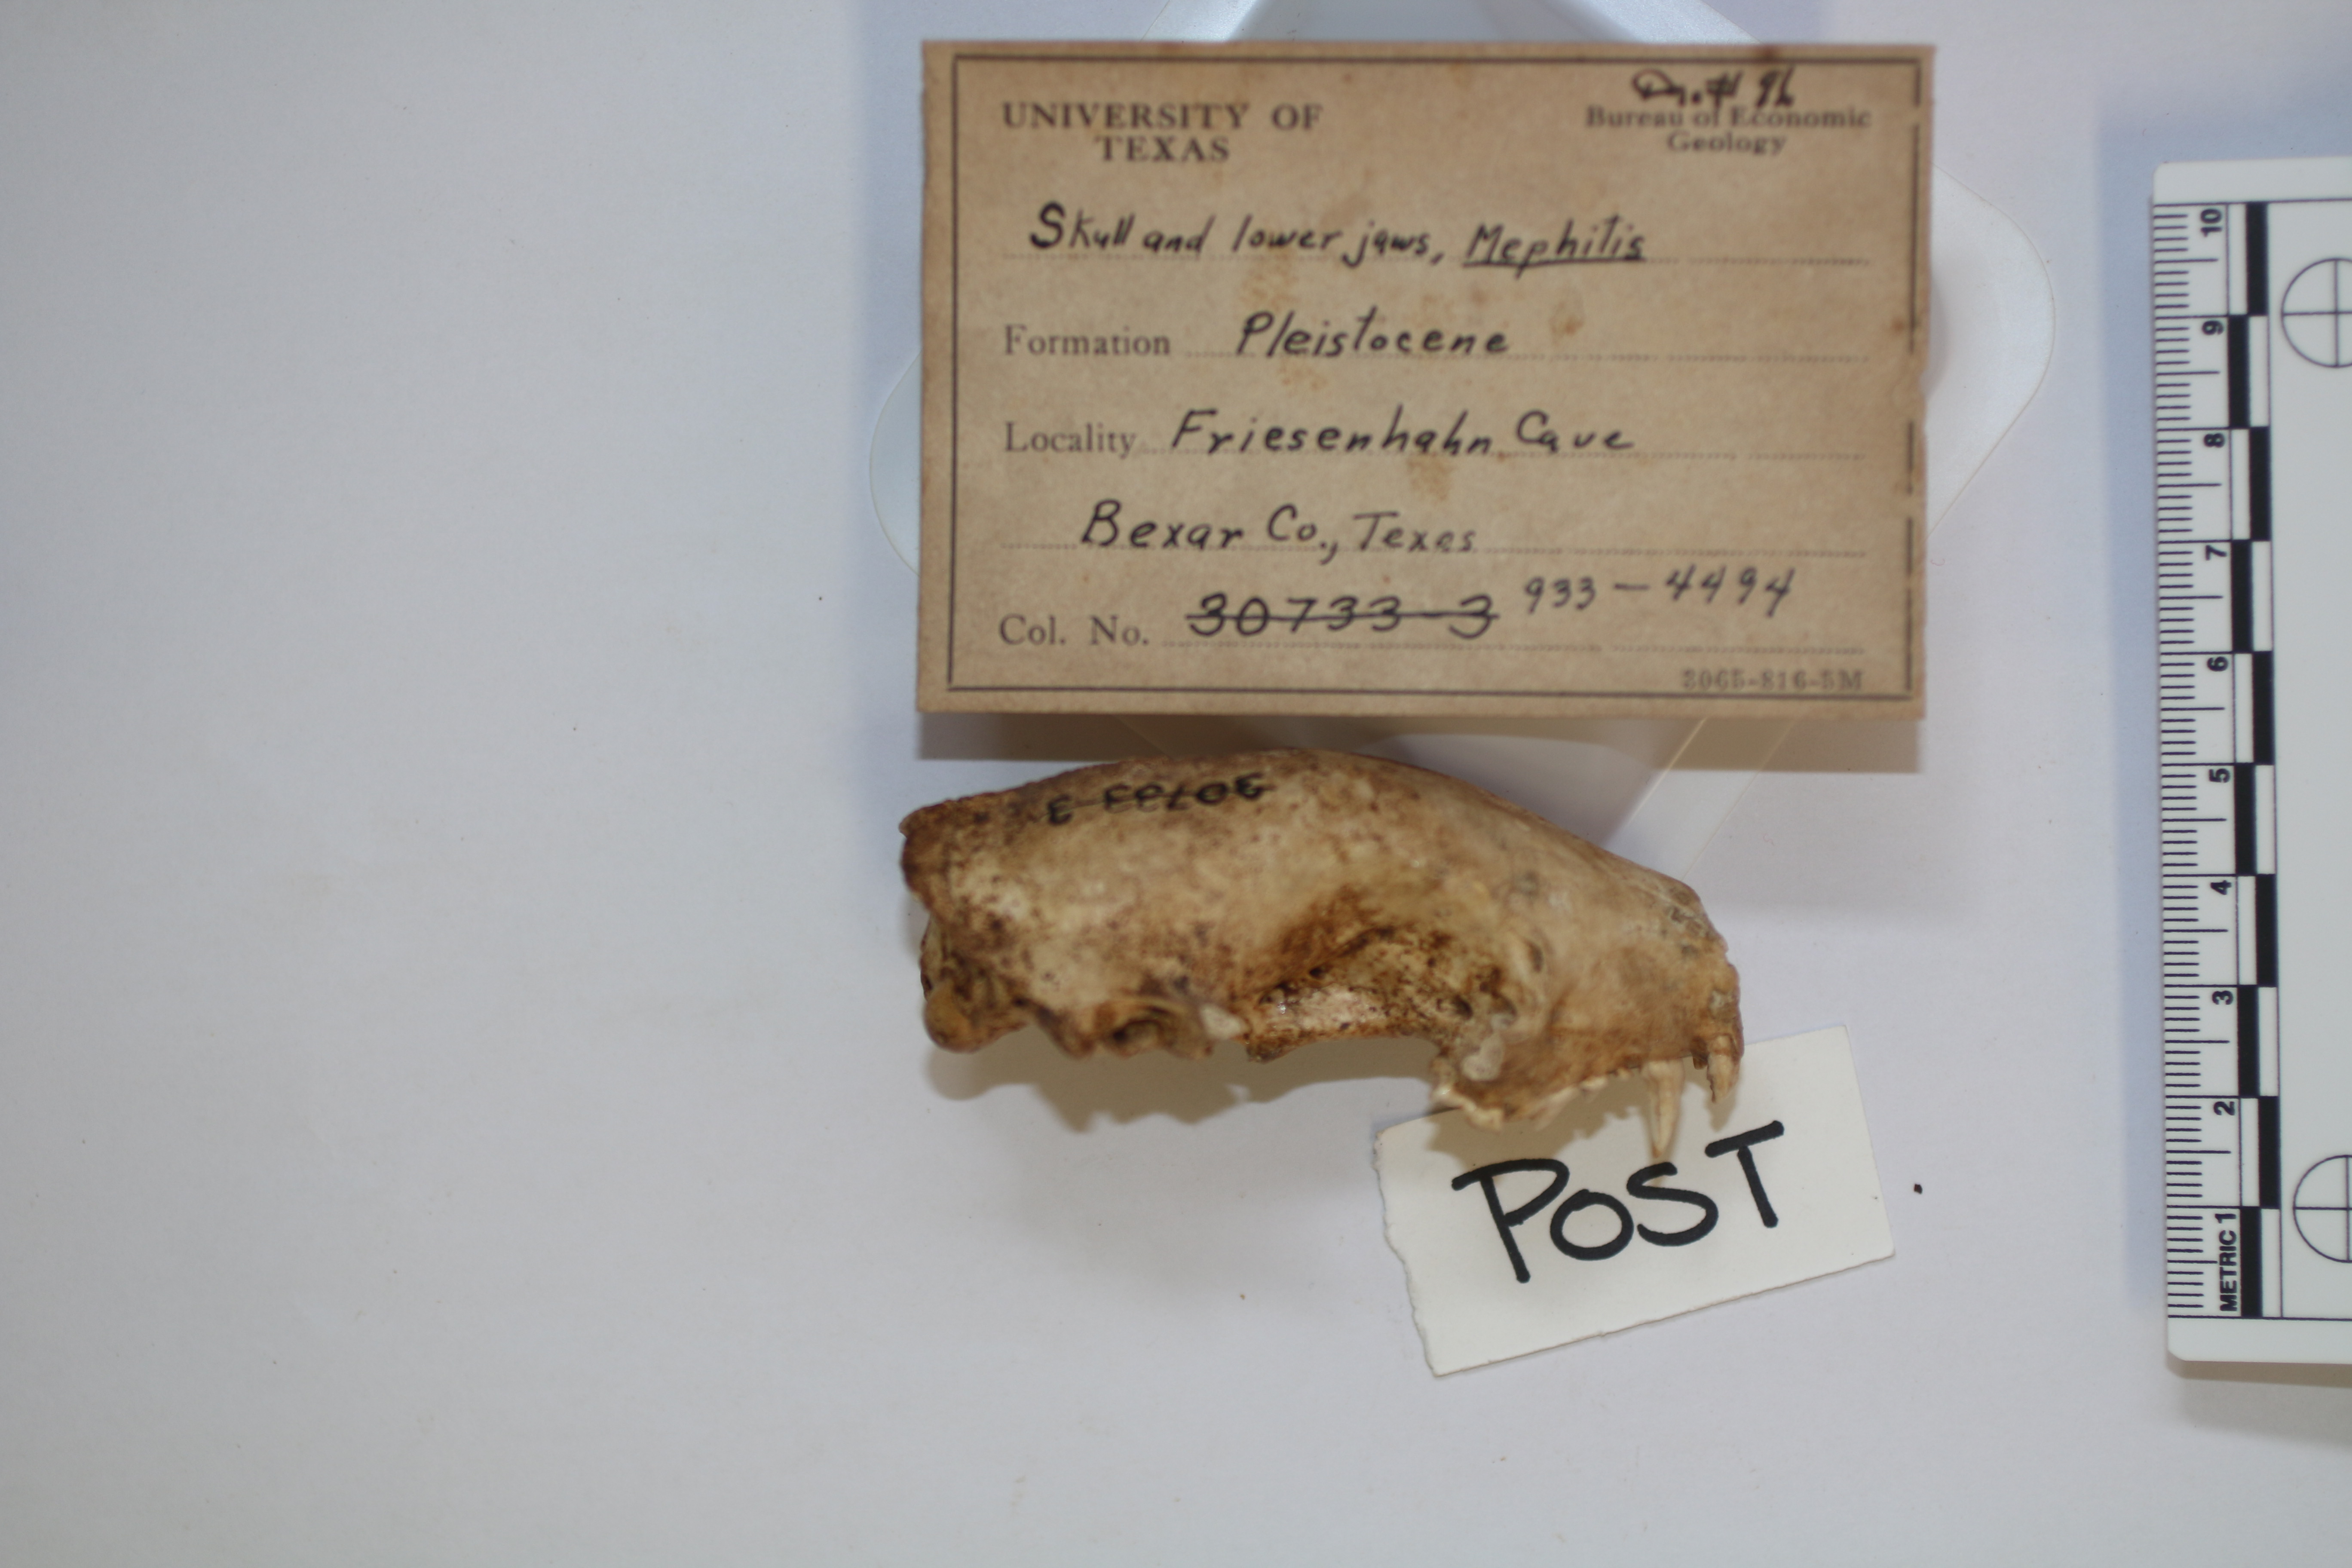 Dr. # 96
UNIVERSITY OF
TEXAS
Bureau of Economic
Geology
Skull and lower jaws, Mephitis
Formation Pleistocene
Locality Friesenhahn Cave
Bexar Co., Texas
Col. No. 30733-3 933-4494
3065-816-5M
30733-3
POST
10
9
8
7
6
5
4
3
2
METRIC 1